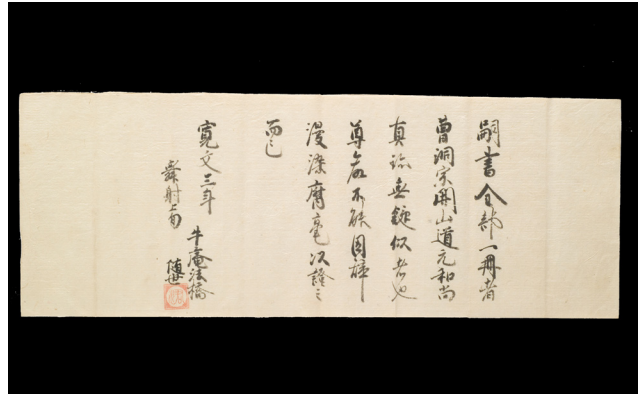 嗣書全部一冊者
曹洞宗開山道元和尚
真跡無疑似者也
尊命不能固辞
漫染腐毫以證之
而已
寛文三年
無射上旬
牛庵法橋
随世